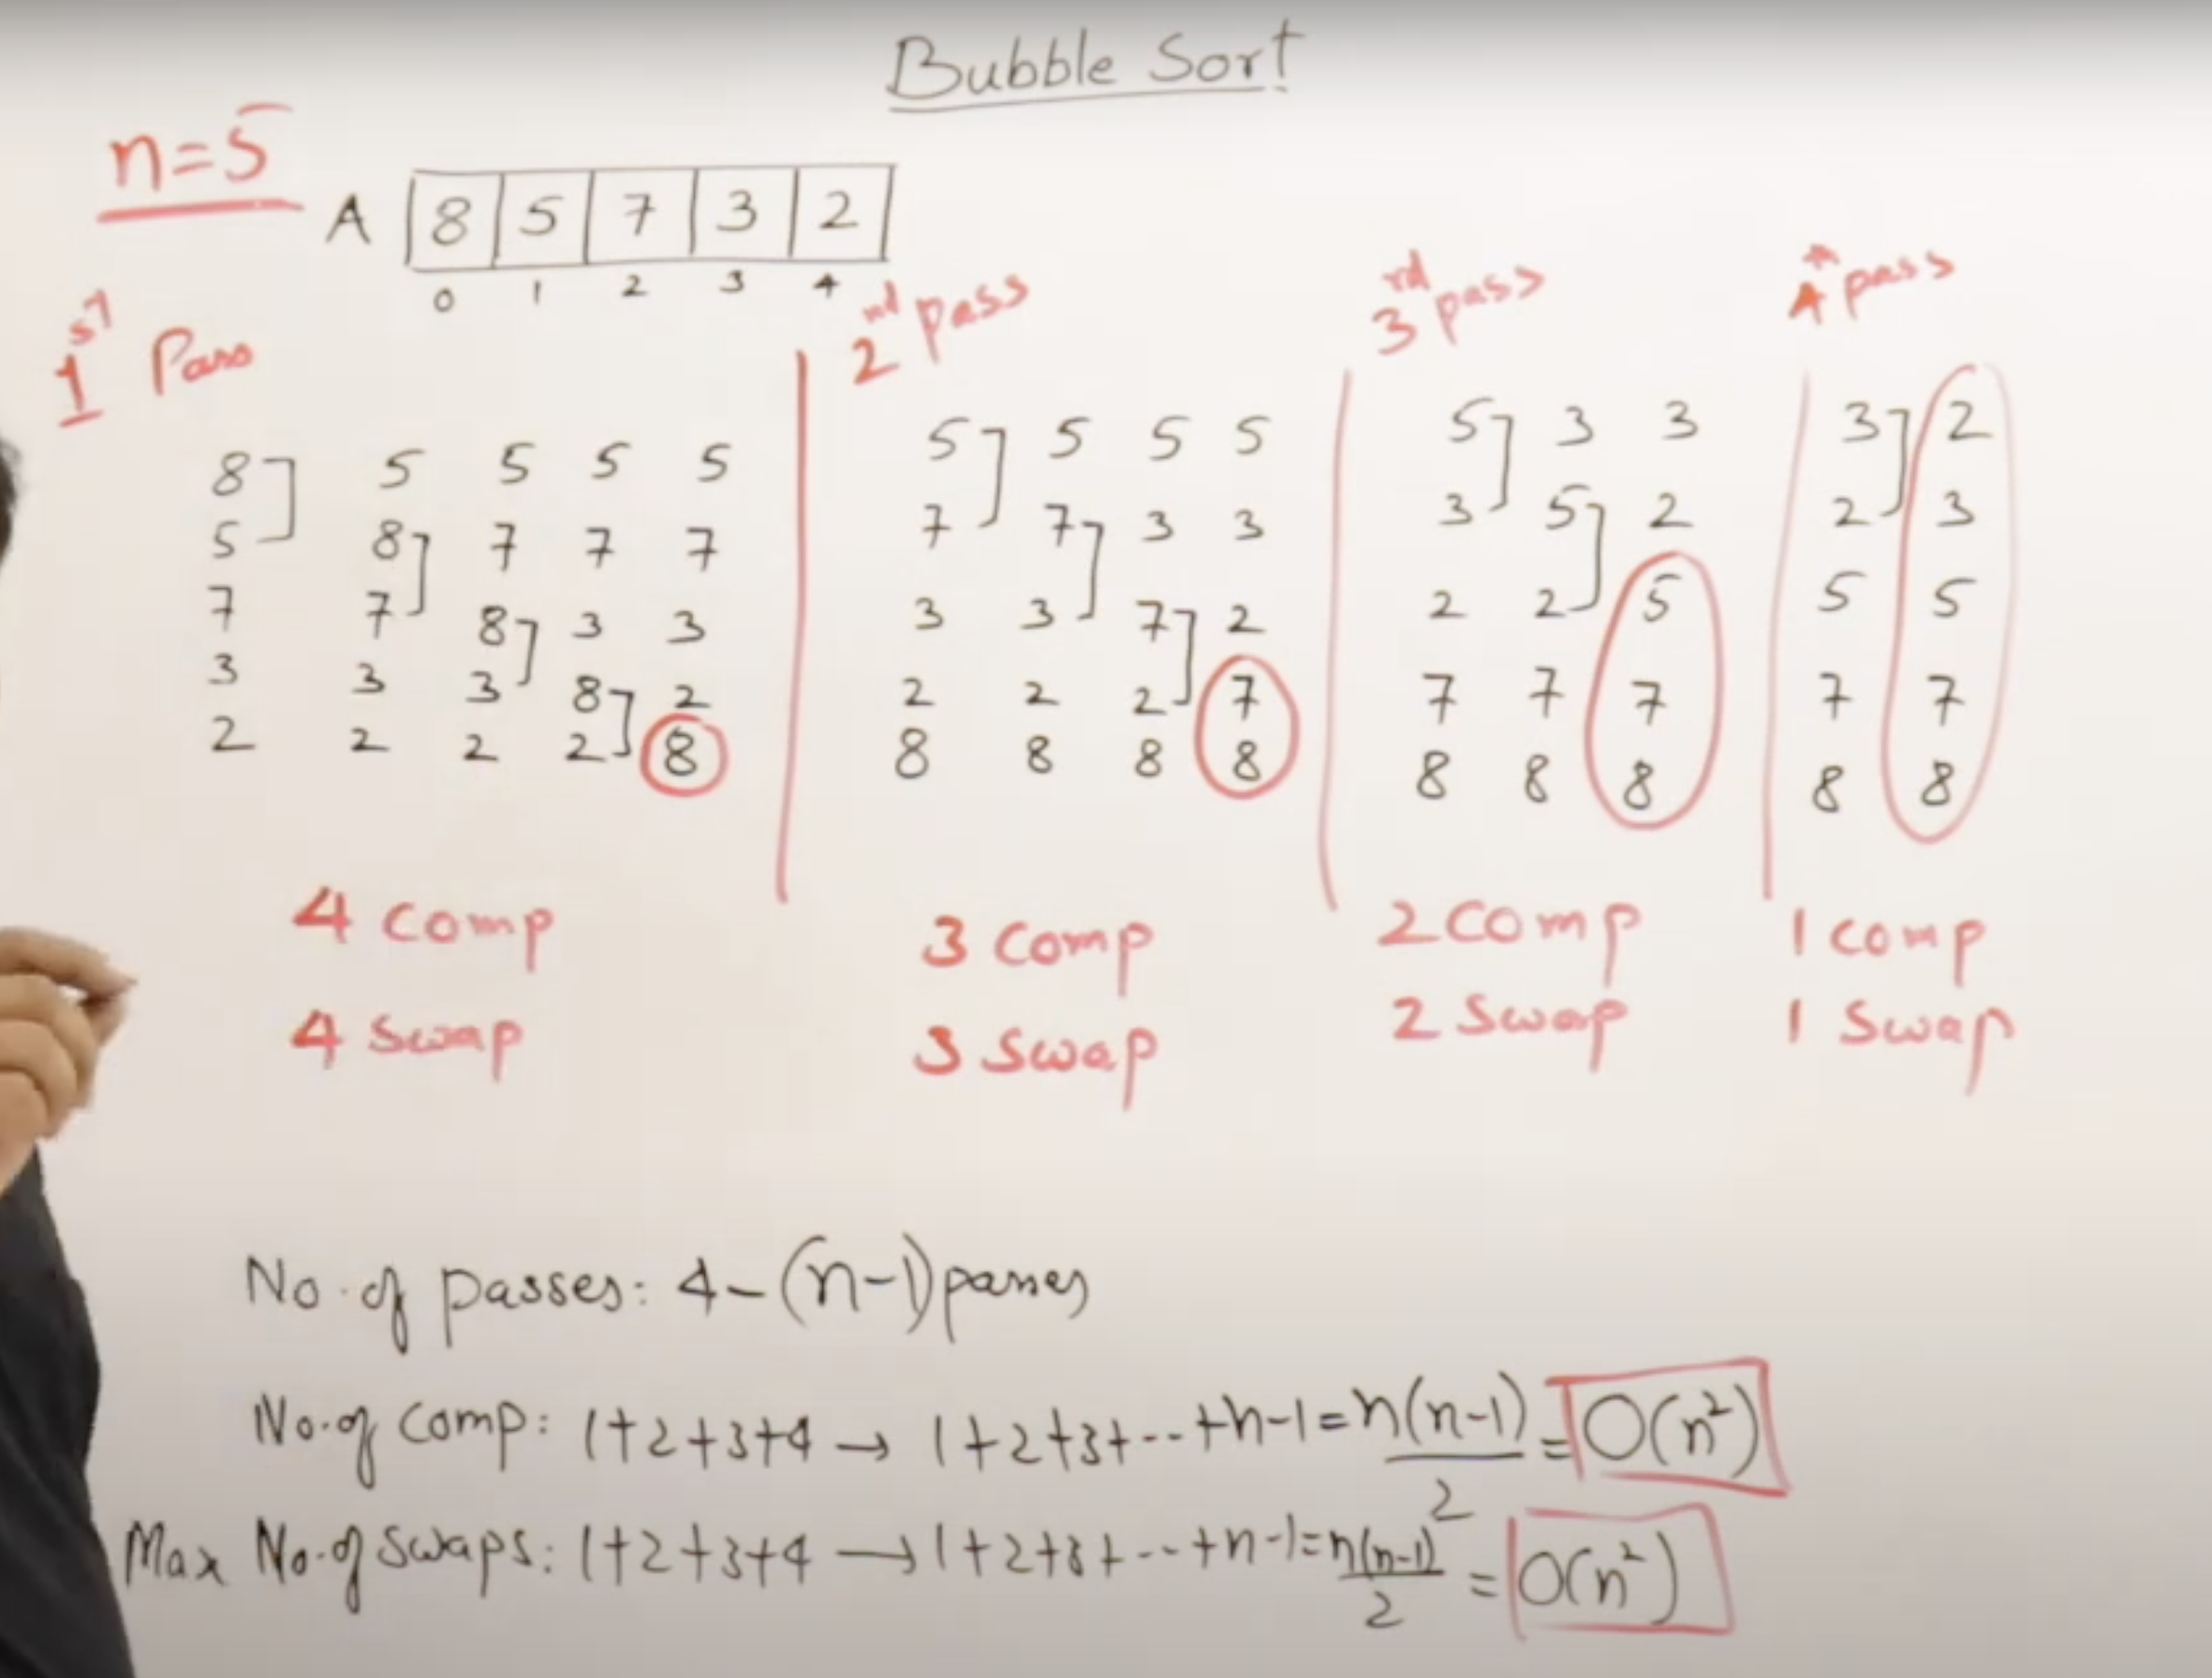 Bubble Sort
n=5
A 8 5 7 3 2
0 1 2 3 4
1st Pass
8 5 5 5 5
5 8 7 7 7
7 7 8 3 3
3 3 3 8 2
2 2 2 2 8
4 Comp
4 Swap
2nd pass
5 5 5 5
7 7 3 3
3 3 7 2
2 2 2 7
8 8 8 8
3 Comp
3 Swap
3rd pass
5 3 3
3 5 2
2 2 5
7 7 7
8 8 8
2 Comp
2 Swap
4th pass
3 2
2 3
5 5
7 7
8 8
1 comp
1 Swap
No. of passes: 4 – (n-1) passes
No. of Comp: 1+2+3+4 → 1+2+3+--+n-1 = n(n-1)/2 = O(n²)
Max No. of Swaps: 1+2+3+4 → 1+2+3+--+n-1 = n(n-1)/2 = O(n²)